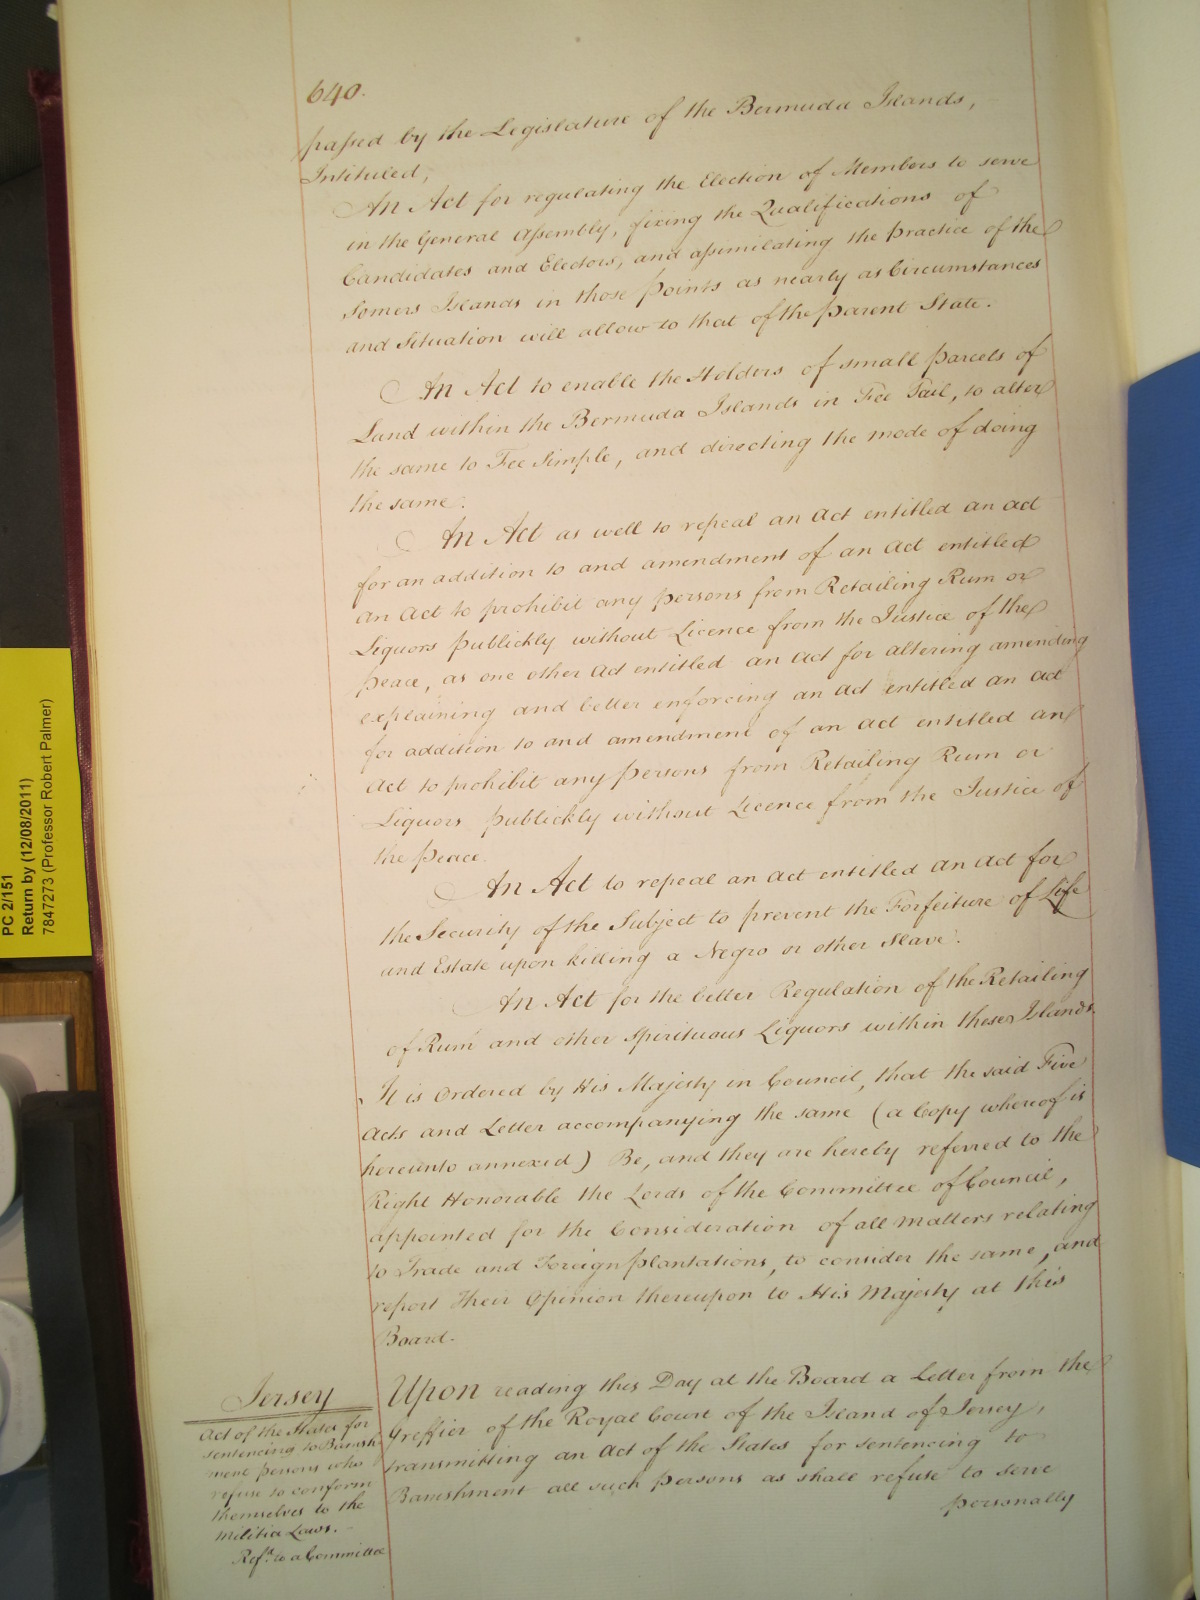 640.
passed by the Legislature of the Bermuda Islands,
Intituled,
An Act for regulating the Election of Members to serve
in the General Assembly, fixing the Qualifications of
Candidates and Electors, and assimilating the practice of the
Somers Islands in those points as nearly as Circumstances
and Situation will allow to that of the parent State.
An Act to enable the Holders of small parcels of
Land within the Bermuda Islands in Fee Tail, to alter
the same to Fee Simple, and directing the mode of doing
the same.
An Act as well to repeal an Act entitled an act
for an addition to and amendment of an Act entitled
an Act to prohibit any persons from Retailing Rum or
Liquors publickly without Licence from the Justice of the
peace, as one other Act entitled an Act for altering amending
explaining and better enforcing an Act entitled an act
for addition to and amendment of an Act entitled an
Act to prohibit any persons from Retailing Rum or
Liquors publickly without Licence from the Justice of
the peace.
An Act to repeal an Act entitled an Act for
the Security of the Subject to prevent the Forfeiture of Life
and Estate upon killing a Negro or other Slave.
An Act for the better Regulation of the Retailing
of Rum and other Spirituous Liquors within these Islands.
It is Ordered by His Majesty in Council, that the said Five
Acts and Letter accompanying the same (a Copy whereof is
hereunto annexed) Be, and they are hereby referred to the
Right Honorable the Lords of the Committee of Council,
appointed for the Consideration of all matters relating
to Trade and Foreign plantations, to consider the same, and
report Their Opinion thereupon to His Majesty at this
Board.
Jersey
Act of the States for
sentencing to Banish-
ment persons who
refuse to conform
themselves to the
Militia Laws.
Ref.d to a Committee
Upon reading this Day at the Board a Letter from the
Greffier of the Royal Court of the Island of Jersey,
transmitting an Act of the States for sentencing to
Banishment all such persons as shall refuse to serve
personally
PC 2/151
Return by (12/08/2011)
7847273 (Professor Robert Palmer)